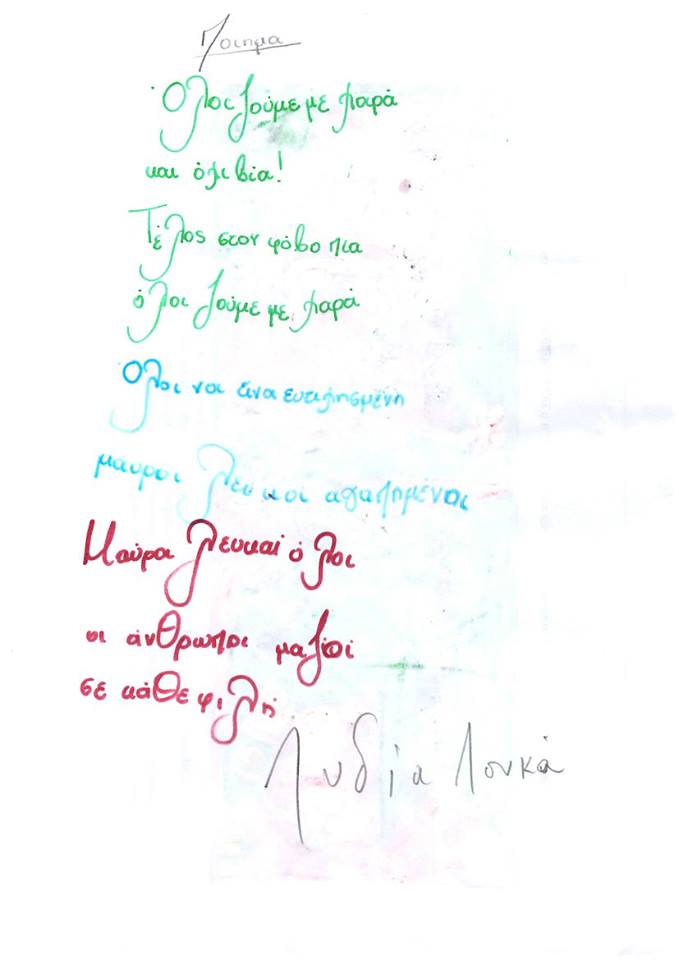 Ποιημα
Όλοι ζούμε με χαρά
και όχι βία!
Τέλος στον φόβο πια
όλοι ζούμε με χαρά
Όλοι να είναι
μαυροι λευκοί αγαπημένοι
Μαύροι λευκοί όλοι
οι άνθρωποι μαζί
σε κάθε φιλή
Λυδία Λουκά